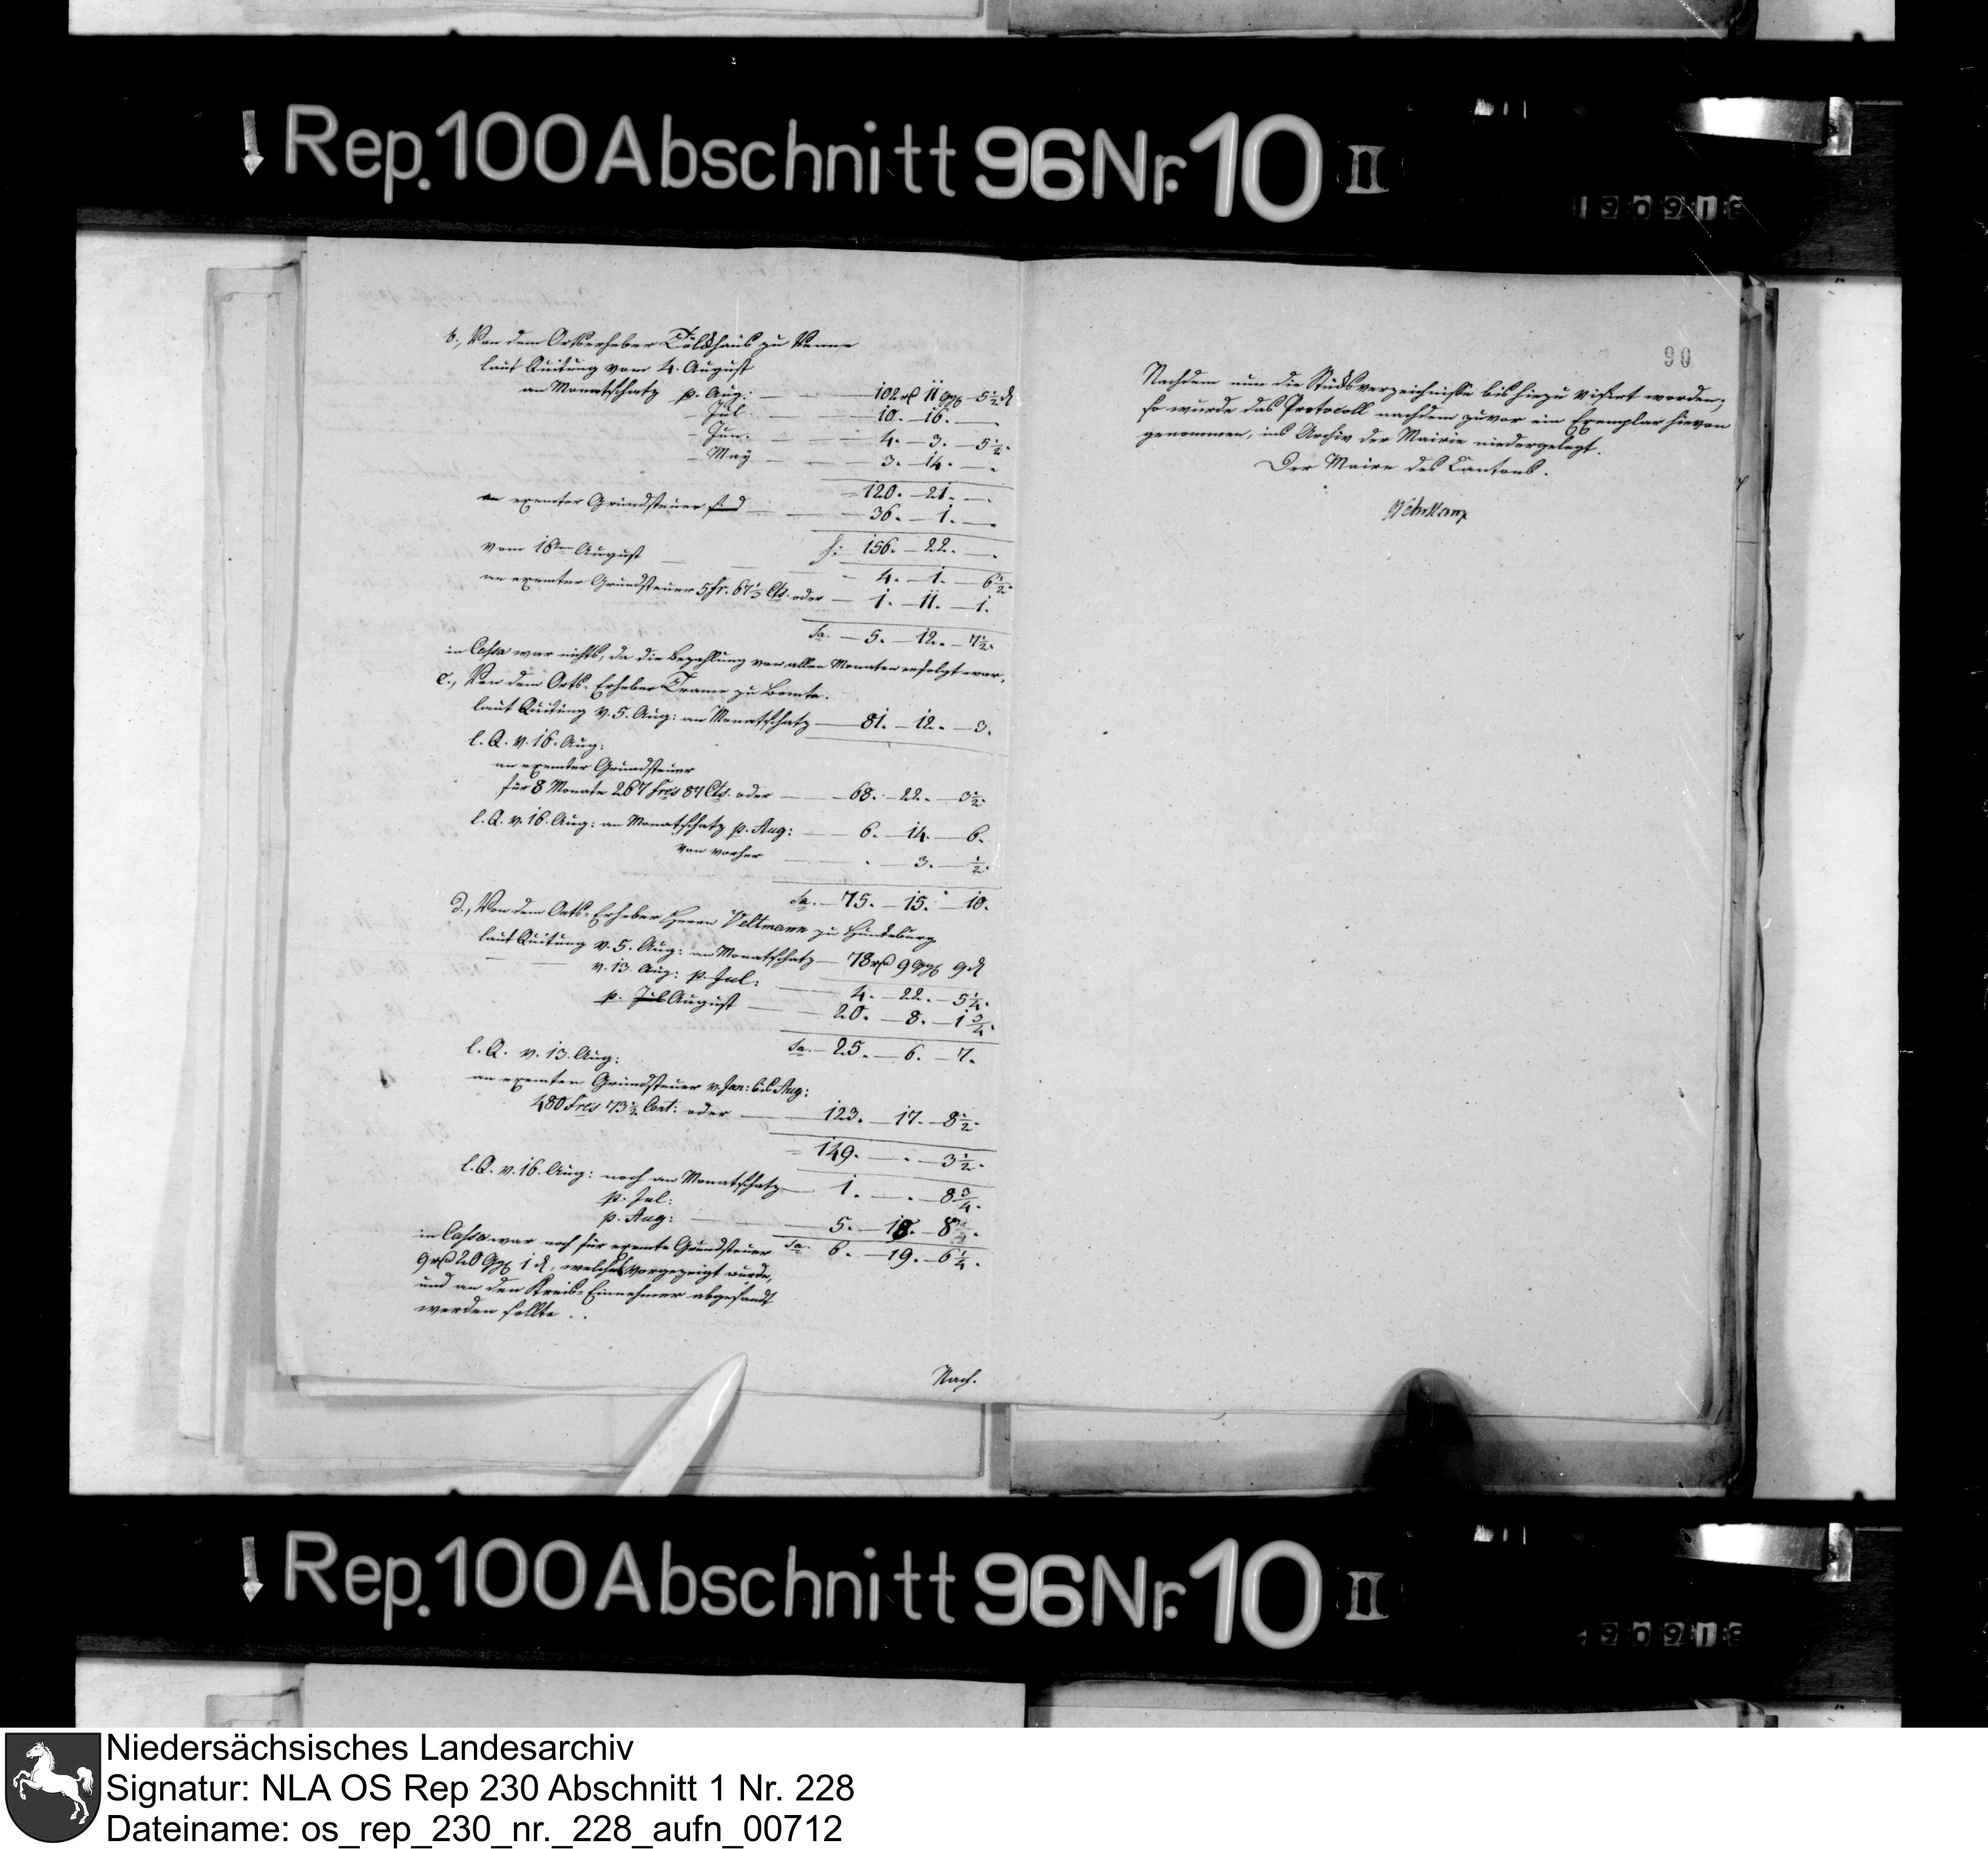 Rep. 100 Abschnitt 96 Nr. 10 II
190918
b., Von dem Ortserheber Tölckhaus zu Venne
laut Quitung vom 4. August
an Monatschatz p. Aug: — 102 rß 11 ggß 5½ d
- Jul — 10. — 16. — .
- Jun: — 4. — 3. — 5½.
- May — 3. — 14. — .
120. — 21. — .
an exemter Grundsteuer — 36. — 1. — .
S: 156. — 22. — .
vom 16ten August — 4. — 1. — 6½.
an exemter Grundsteuer 5 fr. 67½ Cts. oder — 1. — 11. — 1.
Sa. — 5. — 12. — 7½.
in Cassa war nichts, da die Bezahlung von allen Monaten erfolgt war.
c., Von dem Orts-Erheber Trame zu Bomte.
laut Quitung v. 5. Aug: an Monatschatz — 81. — 12. — 3.
l. Q. v. 16. Aug:
an exemter Grundsteuer
für 8 Monate 267 Frcs 87 Cts. oder — 68. — 22. — 3½.
l. Q. v. 16. Aug: an Monatschatz p. Aug: — 6. — 14. — 6.
von vorher — . — 3. — ½.
Sa. — 75. — 15. — 10.
d., Von dem Orts-Erheber Herrn Veltmann zu Hunteburg
laut Quitung v. 5. Aug: an Monatschatz — 78 rß 9 ggß 9 d
v. 13. Aug: p. Jul: — 4. — 22. — 5¼.
p. Jul August — 20. — 8. — 1¾.
Sa. — 25. — 6. — 7.
l. Q. v. 13. Aug:
an exemter Grundsteuer v. Jan: bis Aug:
480 Frcs 73½ Cent: oder — 123. — 17. — 8½.
149. — . — 3½.
l. Q. v. 16. Aug: noch an Monatschatz
p. Jul: — 1. — . — 8¾.
p. Aug: — 5. — 18. — 8
Sa. 6. — 19. — 6¼.
in Cassa war noch für exemte Grundsteuer
9 rß 20 ggß 1 d, welches vorgezeigt wurde,
und an den Kreis-Einnehmer abgesandt
werden sollte.
Nach.
90
Nachdem nun die Stücksverzeichnisse bis hiezu visirt worden,
so wurde das Protocoll nachdem zuvor ein Exemplar hievon
genommen, ins Archiv der Mairie niedergelegt.
Der Maire des Cantons.
Rep. 100 Abschnitt 96 Nr. 10 II
190918
Niedersächsisches Landesarchiv
Signatur: NLA OS Rep 230 Abschnitt 1 Nr. 228
Dateiname: os_rep_230_nr._228_aufn_00712